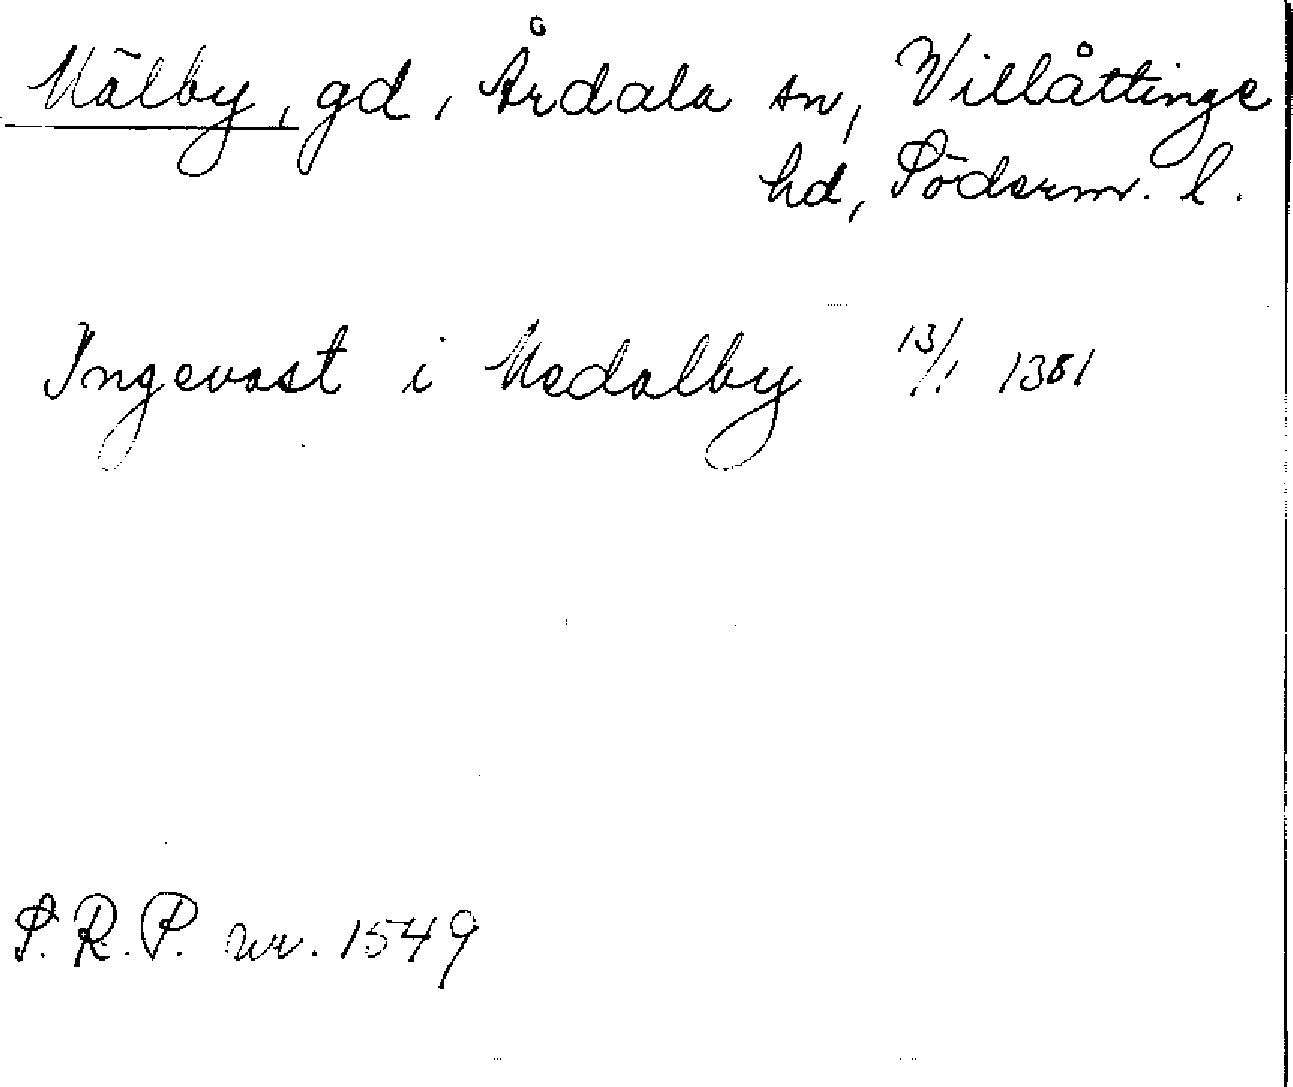 Mälby, gd, Årdala sn, Villåttinge
hd, Söderm. l.
Ingevast i Medalby 13/1 1381
S.R.P. nr. 1549